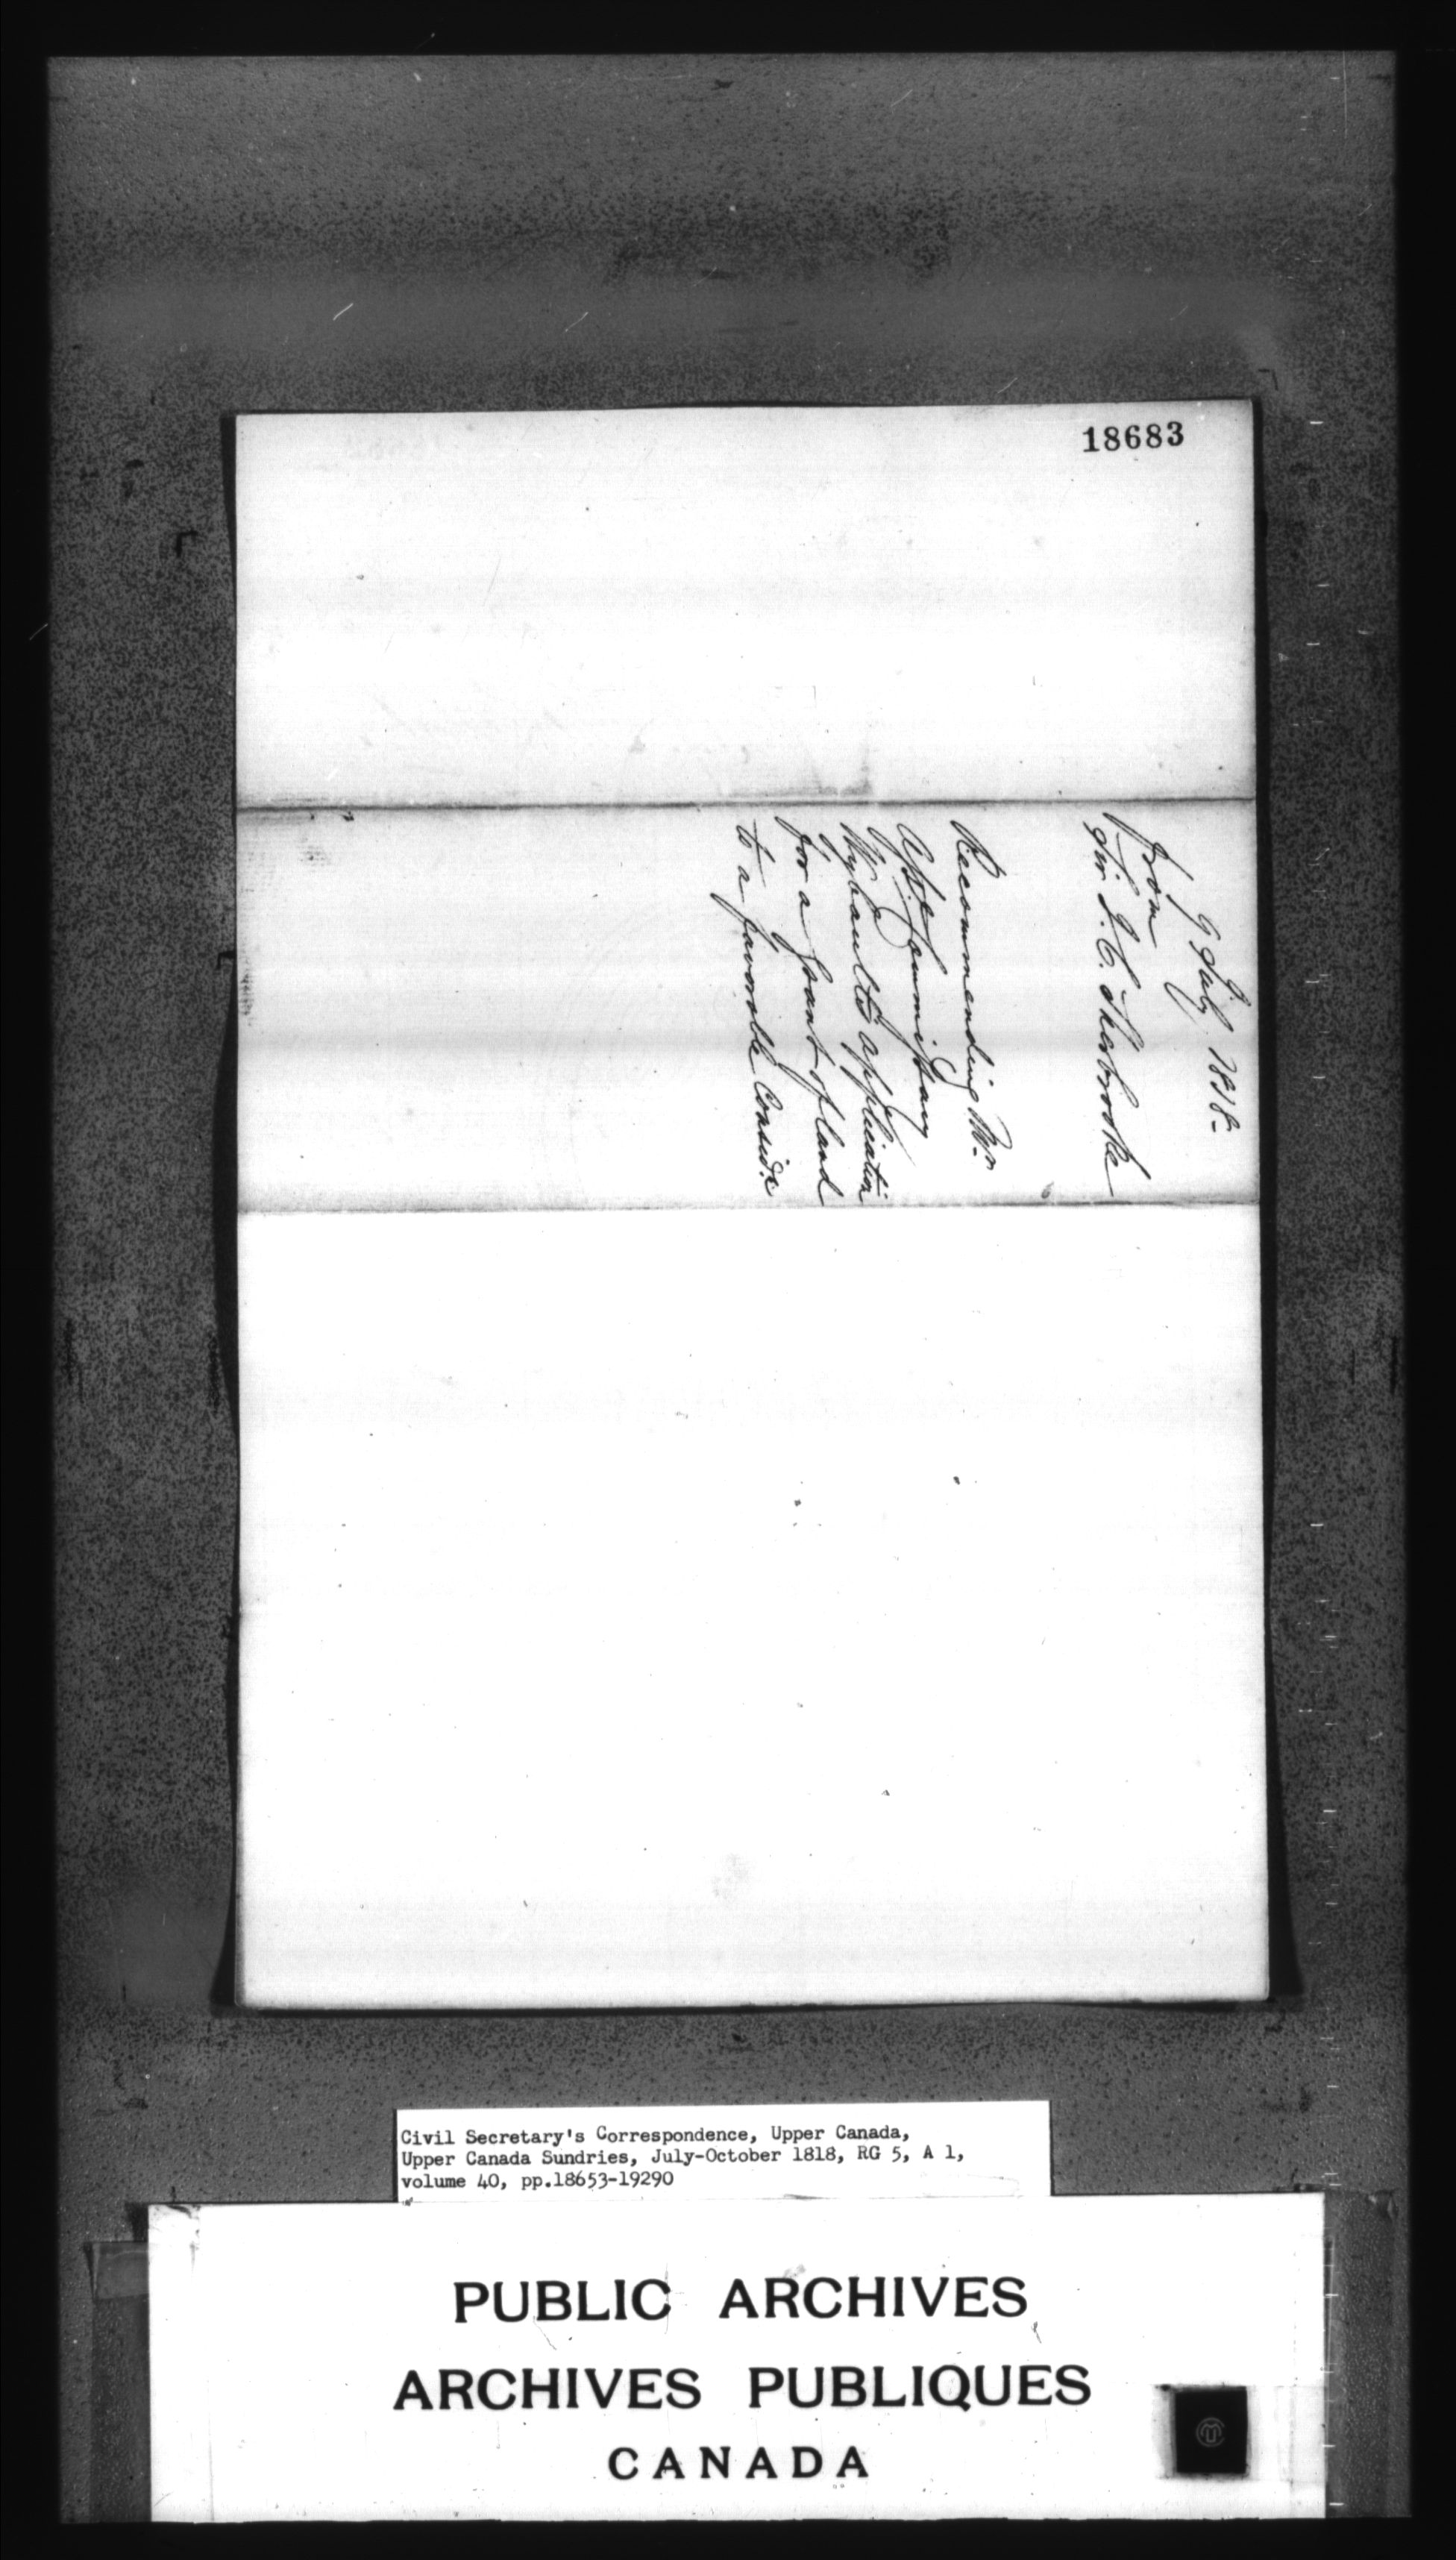 18683
9 July 1818-
From
Sir J. C. Sherbrooke
Recommending Mr
Asst. Commissary
application
for a Grant of Land
to a favorable Consid.
Civil Secretary's Correspondence, Upper Canada,
Upper Canada Sundries, July-October 1818, RG 5, A 1,
volume 40, pp.18653-19290
PUBLIC ARCHIVES
ARCHIVES PUBLIQUES
CANADA